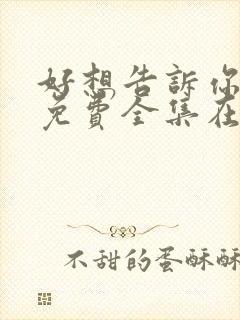 好想告訴你
免費全集在
不甜的蛋酥酥